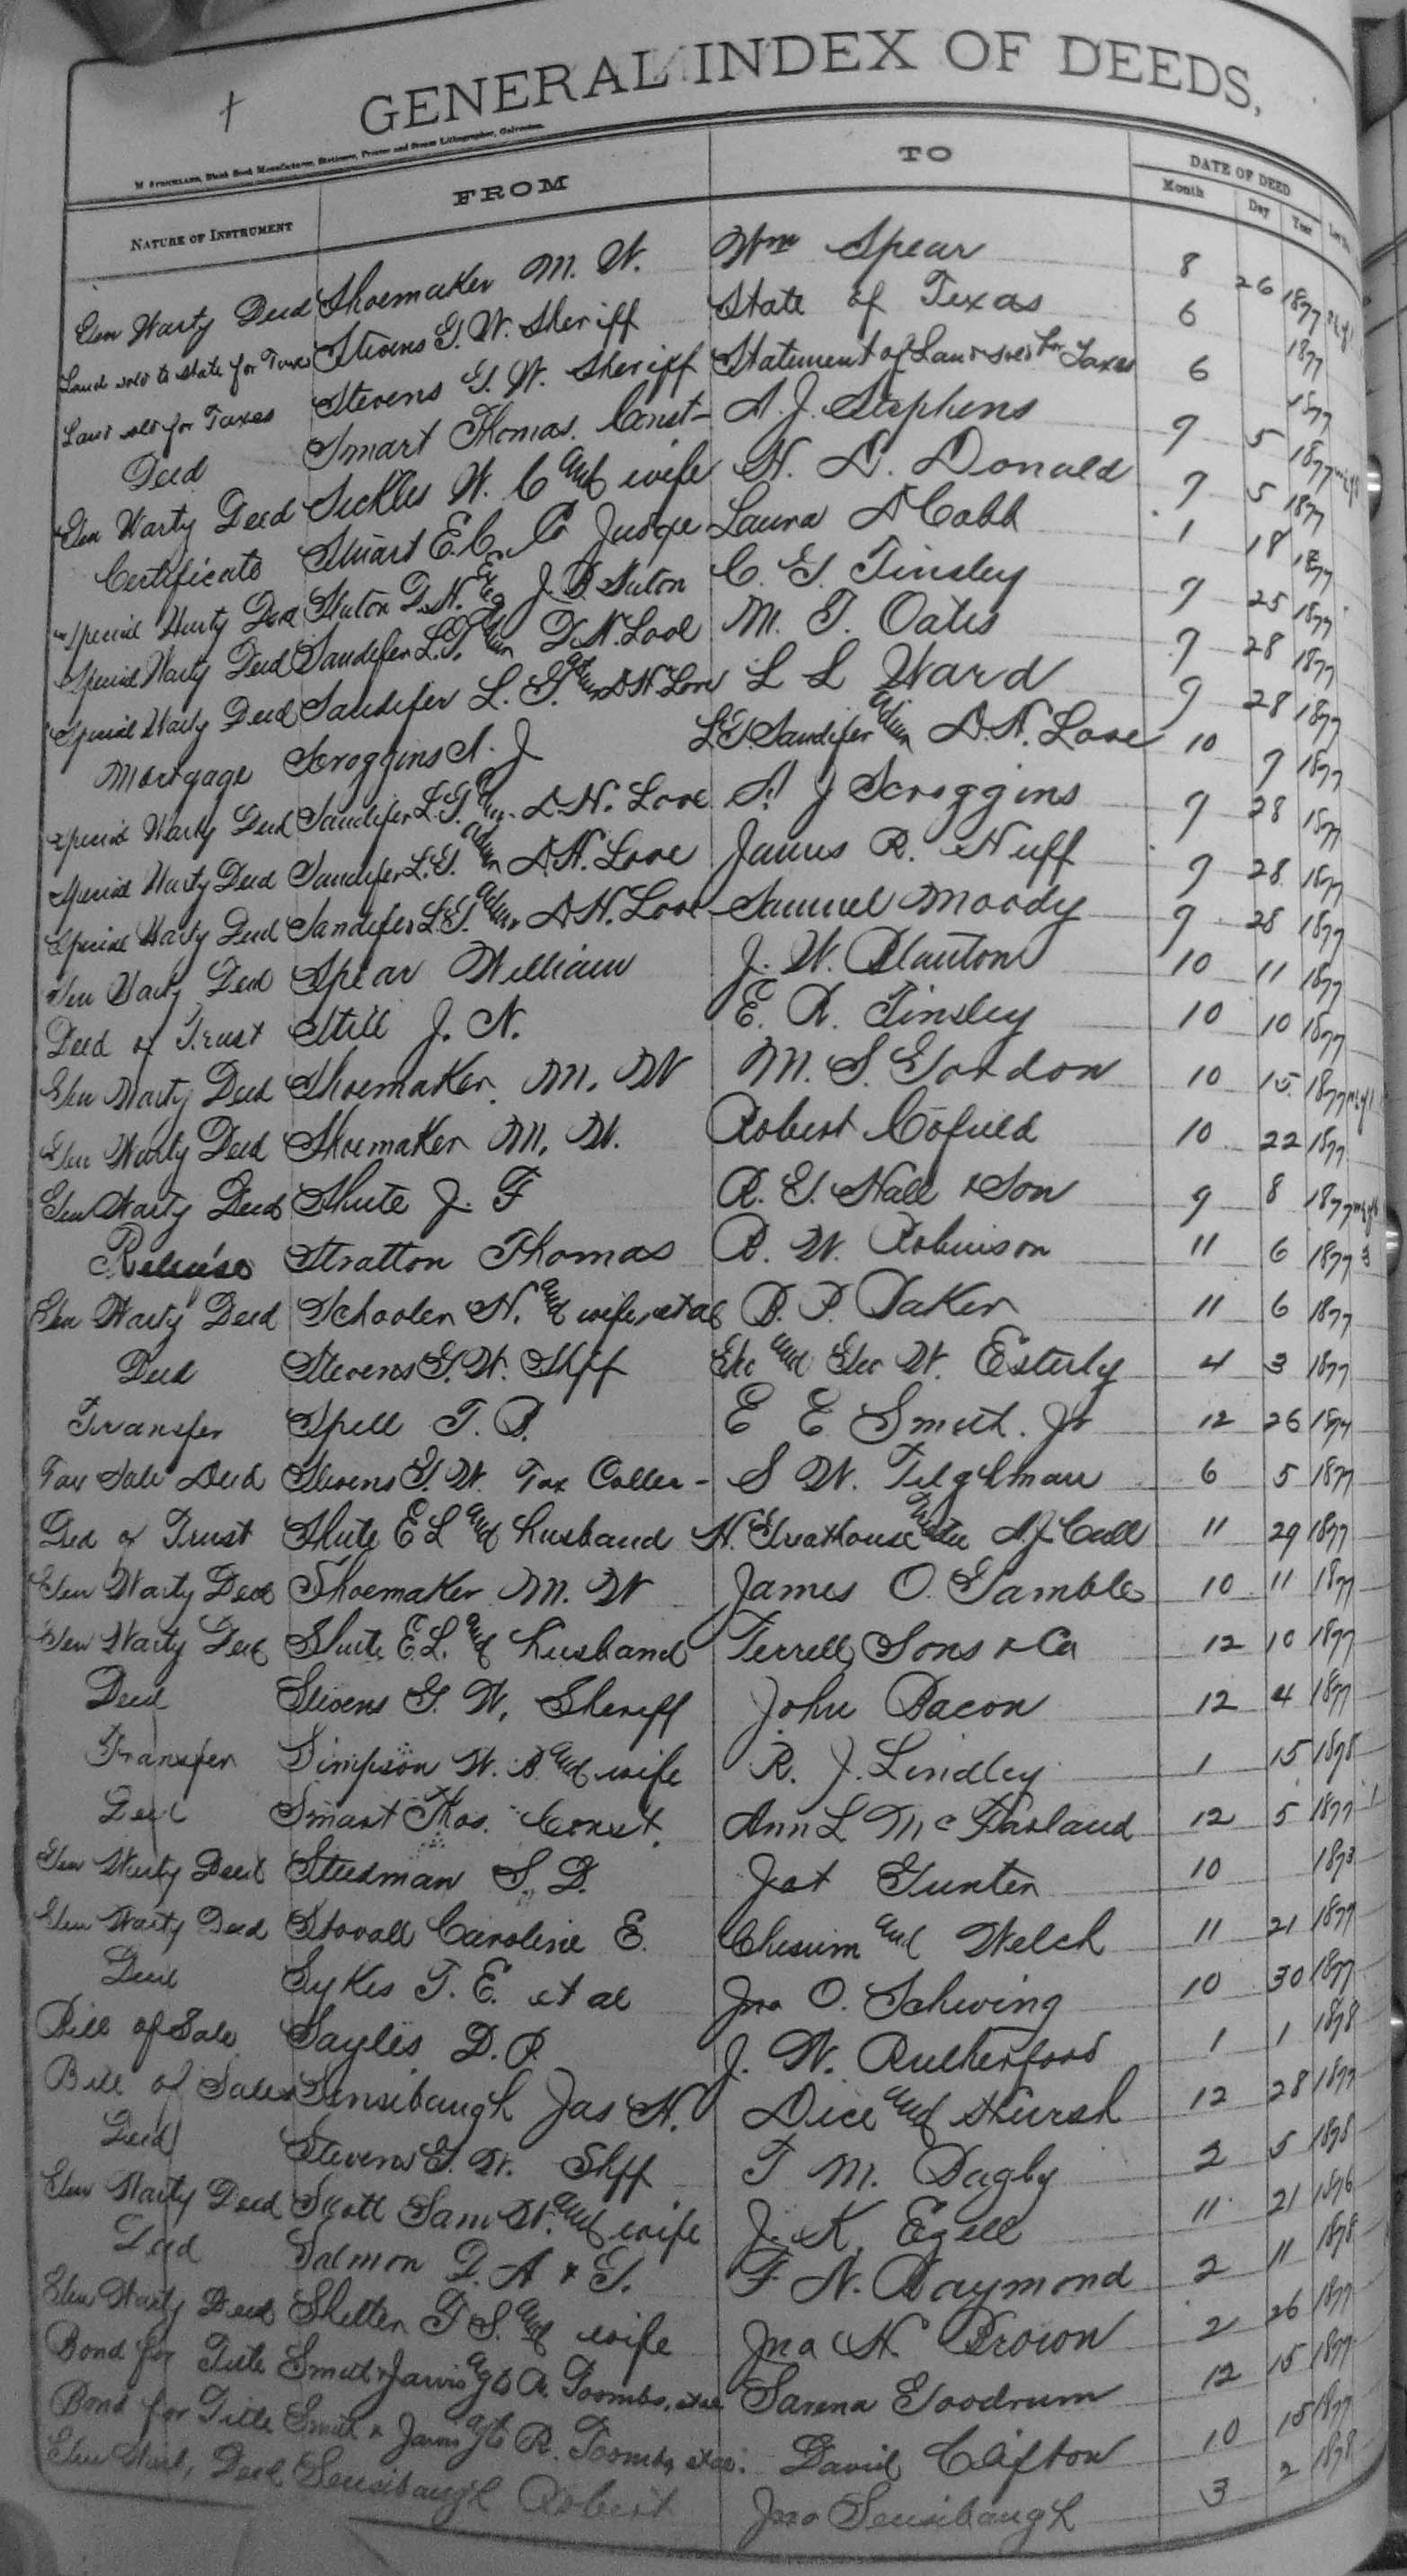 GENERAL INDEX OF DEEDS,
M STRICKLAND, Blank Book Manufacturer, Stationer, Printer and Steam Lithographer, Galveston.
NATURE OF INSTRUMENT FROM TO DATE OF DEED
Month Day Year
Gen Warty Deed Shoemaker M. W. Wm Spear 8 26 1877
Land sold to State for Taxes Stevens G. W. Sheriff State of Texas 6 1877
Land sold for Taxes Stevens G. W. Sheriff Statement of Land sold for Taxes 6 1877
Deed Smart Thomas. Const- A. J. Stephens 9 5 1877
Gen Warty Deed Sickles W. C and wife H. D. Donald 9 5 1877
Certificate Stuart E. C. Co Judge Laura A Cobb 1 18 1877
Special Warty Deed Slaton D. N. J. B. Slaton C. G. Tinsley 9 25 1877
Special Warty Deed Sandifer L. G. Adm D. N. Love M. T. Oates 9 28 1877
Special Warty Deed Sandifer L. G. Adm D. N. Love L L Ward 9 28 1877
Mortgage Scroggins A. J L. G. Sandifer Adm D. N. Love 10 9 1877
Special Warty Deed Sandifer L. G. Adm. D. N. Love A. J Scroggins 9 28 1877
Special Warty Deed Sandifer L. G. Adm D. N. Love James R. Huff 9 28 1877
Special Warty Deed Sandifer L. G. Adm D. N. Love Samuel Moody 9 28 1877
Gen Warty Deed Spear William J. W. Blanton 10 11 1877
Deed of Trust Still J. N. E. R. Tinsley 10 10 1877
Gen Warty Deed Shoemaker M. W M. S. Gordon 10 15 1877
Gen Warty Deed Shoemaker M. W. Robert Cofield 10 22 1877
Gen Warty Deed Shute J. F R. G. Hall & Son 9 8 1877
Release Stratton Thomas B. W. Robinson 11 6 1877
Gen Warty Deed Schooler N. and wife et al B. P. Baker 11 6 1877
Deed Stevens G. W. Shff Geo and Geo W. Esterly 4 3 1877
Transfer Spell T. B. E E Smith. Jr 12 26
Tax Sale Deed Stevens G. W. Tax Collec- S W. Tilghman 6 5 1877
Deed of Trust Shute E L and husband H. Greathouse Trustee A. J. Call 11 29 1877
Gen Warty Deed Shoemaker M. W James O. Gamble 10 11 1877
Gen Warty Deed Shute E. L. and husband Terrell Sons & Co 12 10 1877
Deed Stevens G. W. Sheriff John Bacon 12 4 1877
Transfer Simpson W. B. and wife R. J. Lindley 1 15 1878
Deed Smart Thos. Const. Ann L McFarland 12 5 1877
Gen Warty Deed Steedman S. D. Jot Gunter 10 1873
Gen Warty Deed Stovall Caroline E. Chisum and Welch 11 21 1877
Deed Sykes T. E. et al Jno O. Schwing 10 30 1877
Bill of Sale Sayles D. P. J. W. Rutherford 1 1 1878
Bill of Sale Sensibaugh Jas H. Dice and Hursh 12 28 1877
Deed Stevens G. W. Shff T M. Bagby 2 5 1878
Gen Warty Deed Scott Sam W. and wife J. K. Ezell 11 21 1876
Deed Salmon D. A & G. F. N. Raymond 2 11 1878
Gen Warty Deed Shelter T S. and wife Jno H. Brown 2 26 1877
Bond for Title Smith & Jarvis Agts R. Toombs, et al Sarena Goodrum 12 15 1877
Bond for Title Smith & Jarvis Agts R. Toombs et al. David Clifton 10 15 1877
Gen Warty Deed Sensibaugh Robert Jno Sensibaugh 3 2 1878